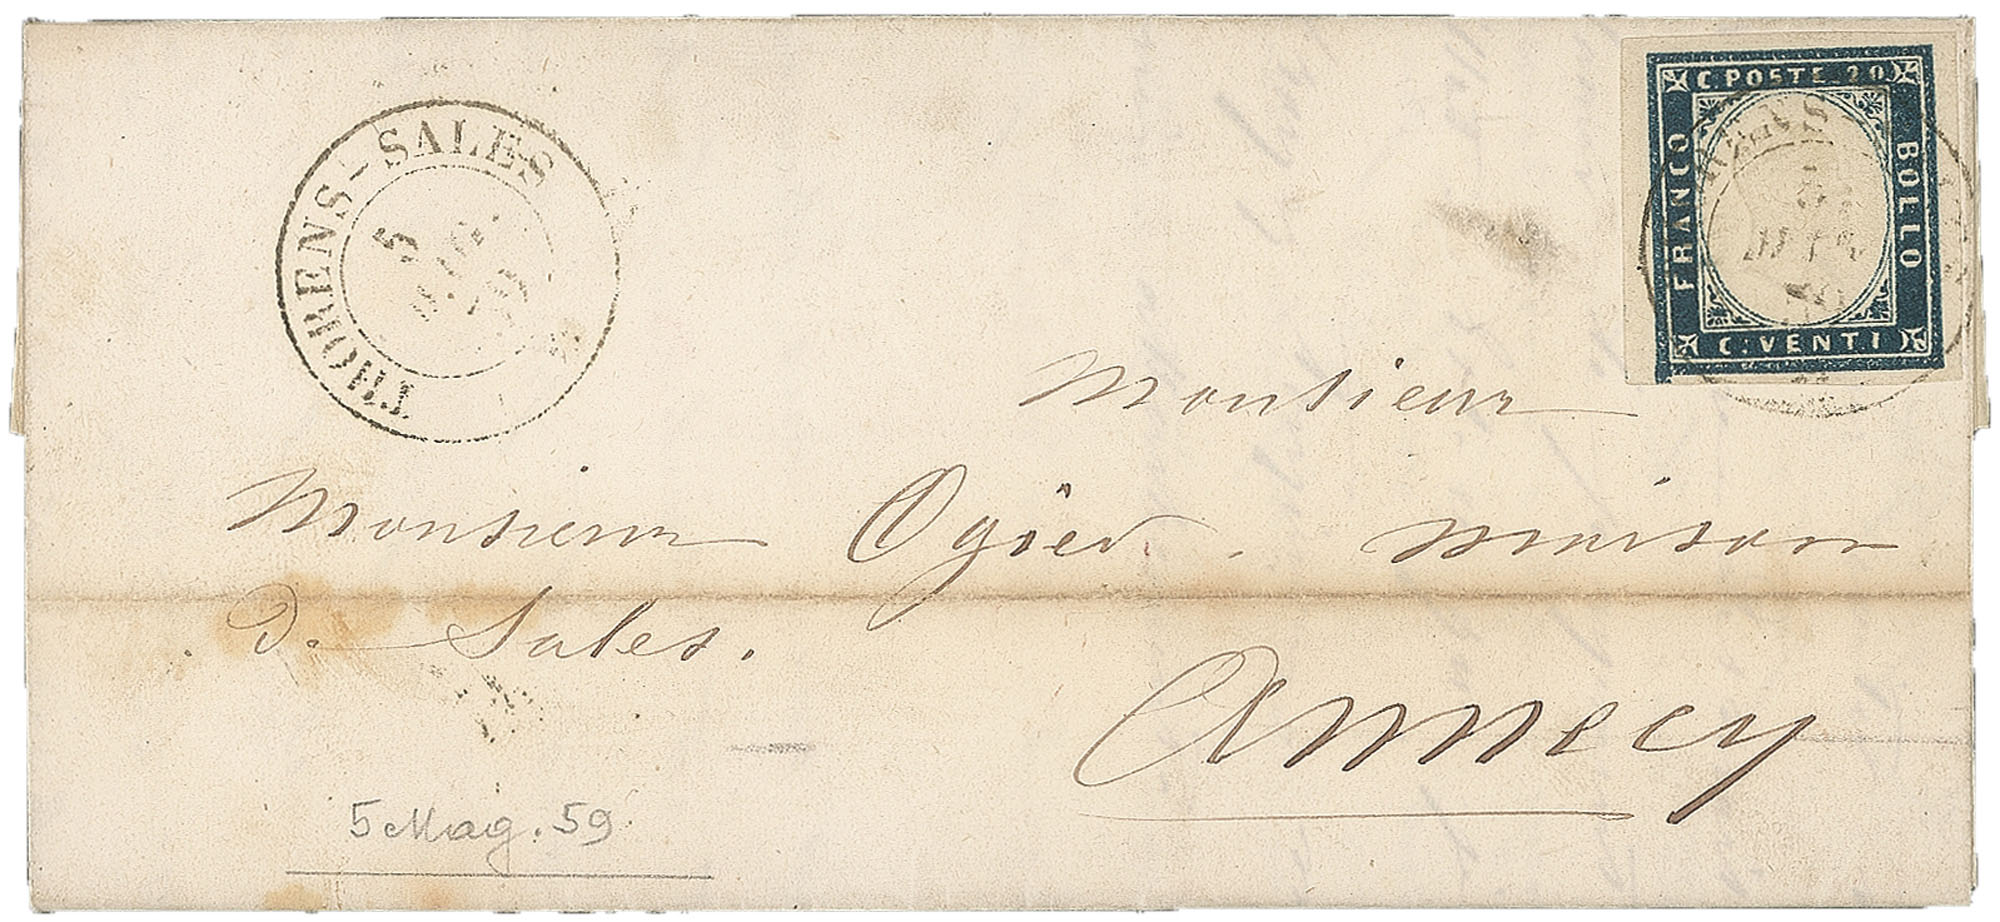 THORENS-SALES
5
C. POSTE 20
FRANCO
BOLLO
C. VENTI
Monsieur
Monsieur maison
De Sales.
Annecy
5 Mag. 59